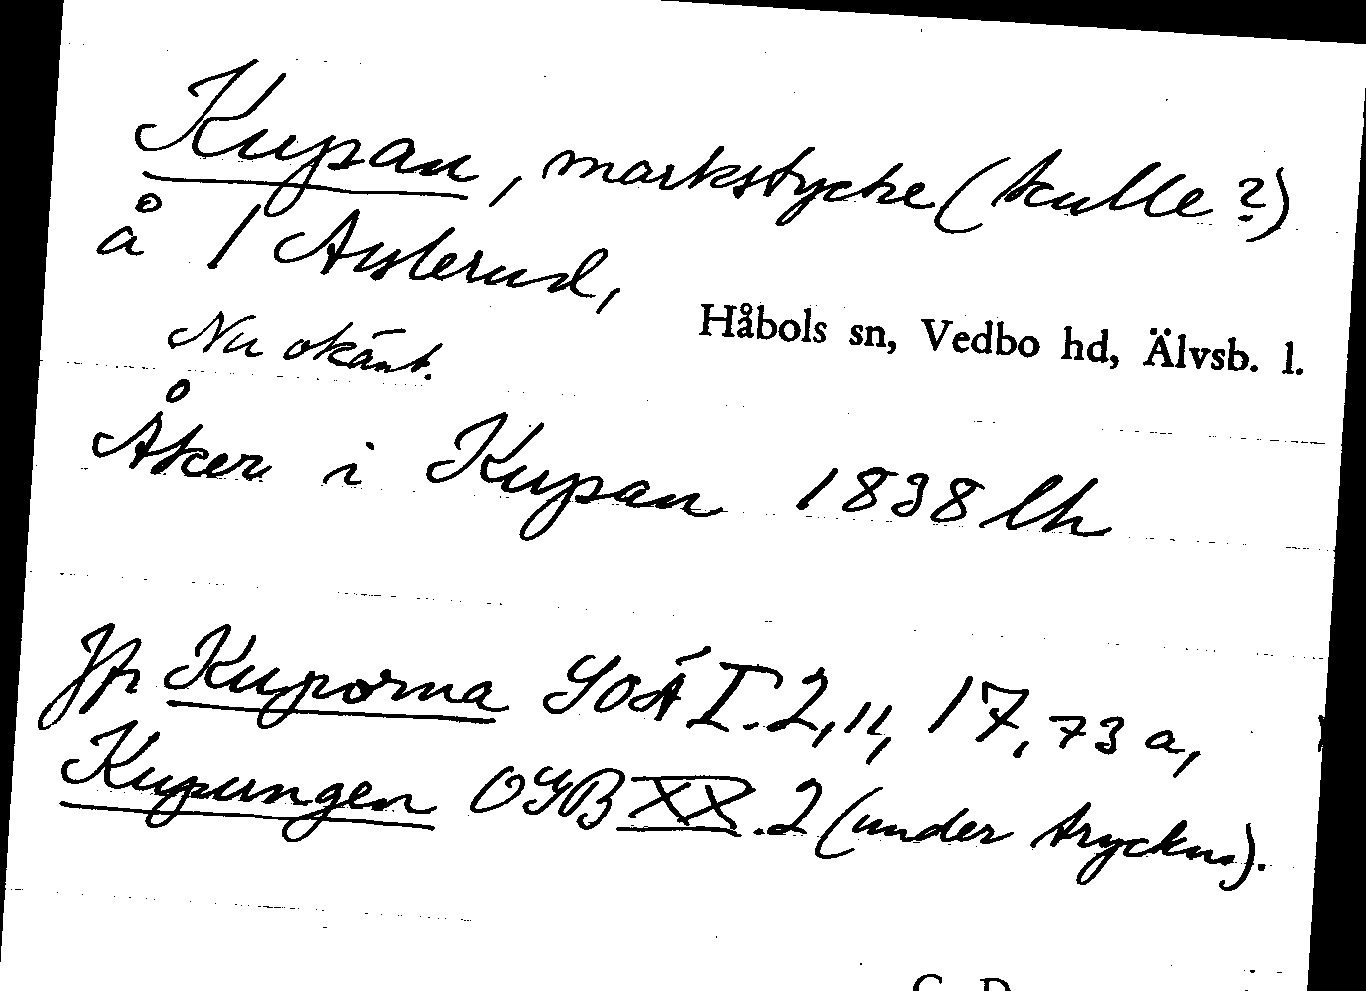 Kupan, markstycke (kulle?)
å 1 Austerud,
Håbols sn, Vedbo hd, Älvsb. l.
Nu okänt.
Åker i Kupan 1838 lh
Jfr Kuporna SOÄ I.2, 11, 17, 73 a,
Kupungen OGB XX.2 (under tryckn.).